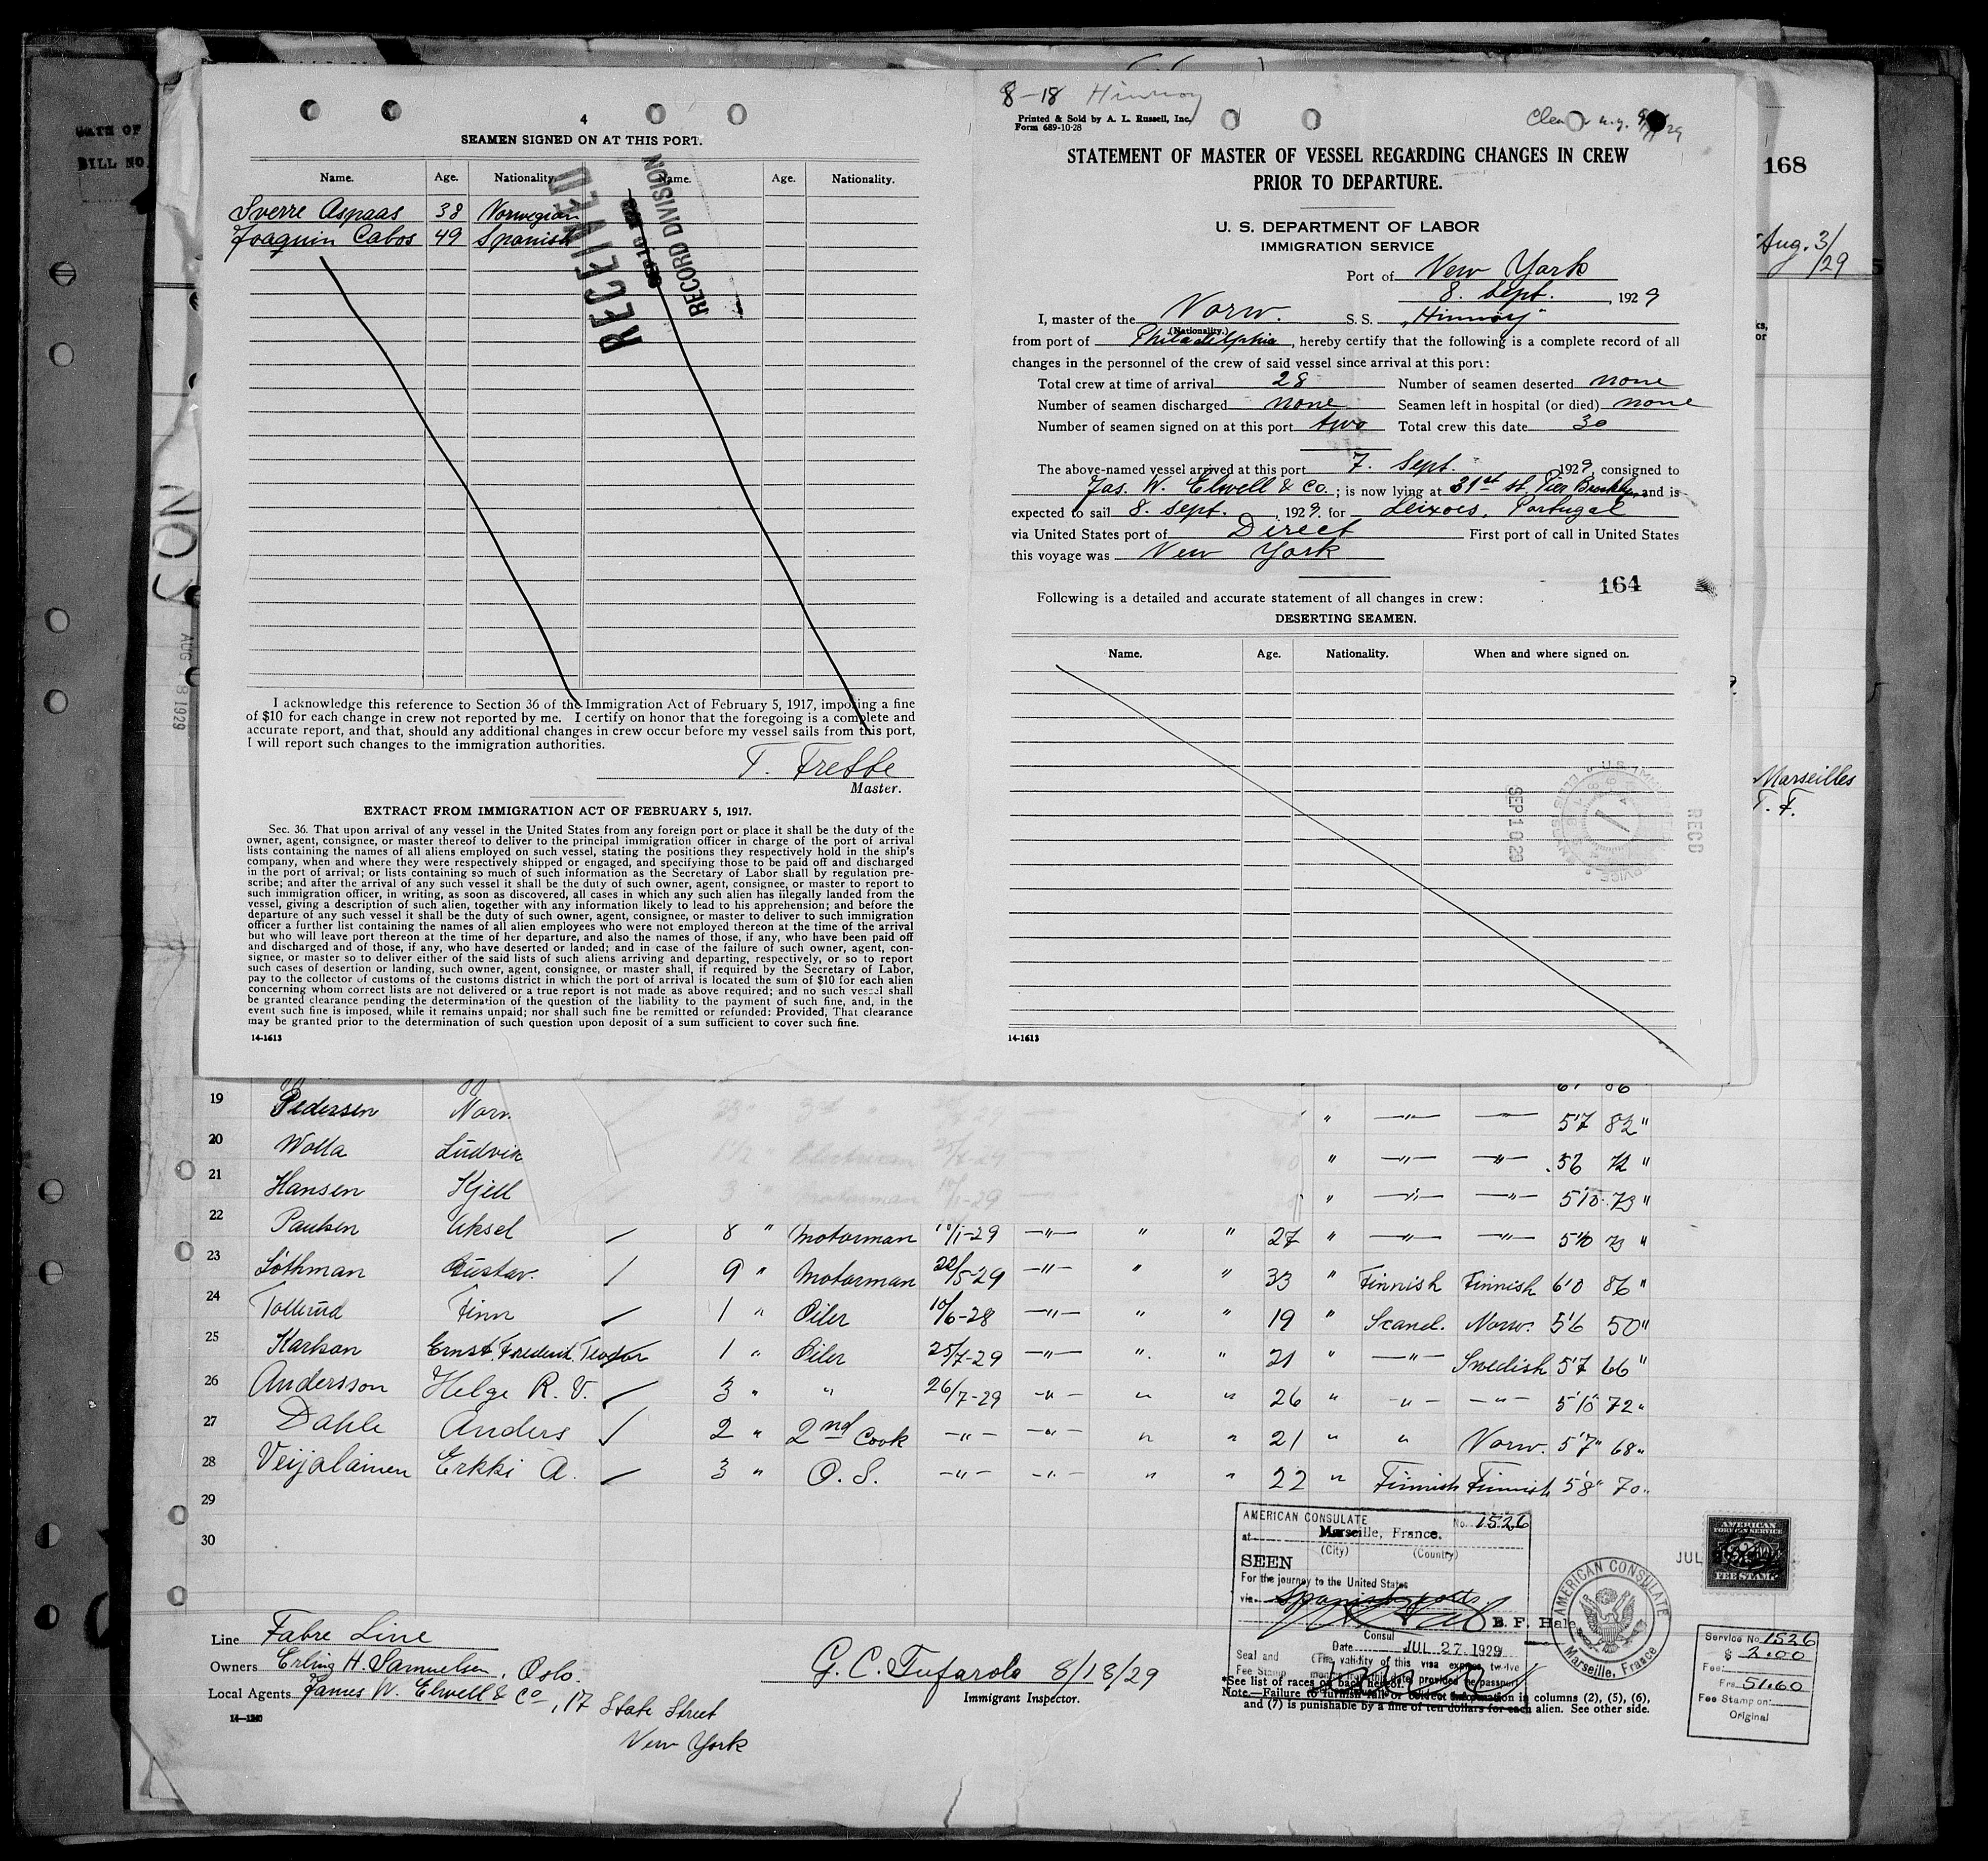 4
SEAMEN SIGNED ON AT THIS PORT.
Name. Age. Nationality. Name. Age. Nationality.
Sverre Aspaas 38 Norwegian
Joaquin Cabos 49 Spanish
RECEIVED
RECORD DIVISION
I acknowledge this reference to Section 36 of the Immigration Act of February 5, 1917, imposing a fine
of $10 for each change in crew not reported by me. I certify on honor that the foregoing is a complete and
accurate report, and that, should any additional changes in crew occur before my vessel sails from this port,
I will report such changes to the immigration authorities.
Master.
EXTRACT FROM IMMIGRATION ACT OF FEBRUARY 5, 1917.
Sec. 36. That upon arrival of any vessel in the United States from any foreign port or place it shall be the duty of the
owner, agent, consignee, or master thereof to deliver to the principal immigration officer in charge of the port of arrival
lists containing the names of all aliens employed on such vessel, stating the positions they respectively hold in the ship's
company, when and where they were respectively shipped or engaged, and specifying those to be paid off and discharged
in the port of arrival; or lists containing so much of such information as the Secretary of Labor shall by regulation pre-
scribe; and after the arrival of any such vessel it shall be the duty of such owner, agent, consignee, or master to report to
such immigration officer, in writing, as soon as discovered, all cases in which any such alien has illegally landed from the
vessel, giving a description of such alien, together with any information likely to lead to his apprehension; and before the
departure of any such vessel it shall be the duty of such owner, agent, consignee, or master to deliver to such immigration
officer a further list containing the names of all alien employees who were not employed thereon at the time of the arrival
but who will leave port thereon at the time of her departure, and also the names of those, if any, who have been paid off
and discharged and of those, if any, who have deserted or landed; and in case of the failure of such owner, agent, con-
signee, or master so to deliver either of the said lists of such aliens arriving and departing, respectively, or so to report
such cases of desertion or landing, such owner, agent, consignee, or master shall, if required by the Secretary of Labor,
pay to the collector of customs of the customs district in which the port of arrival is located the sum of $10 for each alien
concerning whom correct lists are not delivered or a true report is not made as above required; and no such vessel shall
be granted clearance pending the determination of the question of the liability to the payment of such fine, and, in the
event such fine is imposed, while it remains unpaid; nor shall such fine be remitted or refunded: Provided, That clearance
may be granted prior to the determination of such question upon deposit of a sum sufficient to cover such fine.
14-1613
8-18 Hinnoy
Printed & Sold by A. L. Russell, Inc.
Form 689-10-28
STATEMENT OF MASTER OF VESSEL REGARDING CHANGES IN CREW
PRIOR TO DEPARTURE.
U. S. DEPARTMENT OF LABOR
IMMIGRATION SERVICE
Port of New York
8. Sept., 1929
I, master of the Norw. S. S. „Hinnöy"
(Nationality.)
from port of Philadelphia, hereby certify that the following is a complete record of all
changes in the personnel of the crew of said vessel since arrival at this port:
Total crew at time of arrival 28 Number of seamen deserted none
Number of seamen discharged none Seamen left in hospital (or died) none
Number of seamen signed on at this port two Total crew this date 30
The above-named vessel arrived at this port 7. Sept. 1929, consigned to
Jas. W. Elwell & Co.; is now lying at 31st St. Pier Brooklyn, and is
expected to sail 8. Sept., 1929. for Leixoes, Portugal
via United States port of Direct First port of call in United States
this voyage was New York
164
Following is a detailed and accurate statement of all changes in crew:
DESERTING SEAMEN.
Name. Age. Nationality. When and where signed on.
SEP 10 29
RECD
14-1613
168
Aug. 3/29
Marseilles
T. F.
AUG 18 1929
BILL NO
19 Pedersen Norv. " —"— —"— 5'7 82 "
20 Wolla Ludvik " —"— —"— 72 "
21 Hansen Kjell " —"— —"— 5'10 73 "
22 Paulsen Aksel 8 " Motorman 10/1-29 —"— " " 27 " —"— —"— 5'10 73 "
23 Löthman Gustav. 9 " Motorman 22/5-29 —"— " " 33 " Finnish Finnish 6'0 86 "
24 Tollerud Finn 1 " Oiler 10/6-28 —"— " " 19 " Scand. Norw. 5'6 50 "
25 Karlson Ernst. Frederik. Teodor 1 " Oiler 25/7-29 —"— " " 21 " —"— Swedish 5'7 66 "
26 Andersson Helge R. V. 3 " " 26/7-29 —"— " " 26 " —"— —"— 5'10" 72 "
27 Dahle Anders 2 " 2nd Cook —"— —"— " " 21 " " Norw. 5'7" 68 "
28 Veijalainen Erkki A. 3 " O. S. —"— —"— " " 22 " Finnish Finnish 5'8" 70 "
29
30
AMERICAN CONSULATE No. 1526
at Marseille, France.
(City) (Country)
SEEN
For the journey to the United States
via Spanish ports
B. F. Hale
Consul
Date JUL 27. 1929
AMERICAN CONSULATE
Marseille, France
AMERICAN
FOREIGN SERVICE
FEE STAMP
JUL
Service No. 1526
$ 2.00
Fee:
Frs. 51.60
Fee Stamp on:
Original
Line Fabre Line
Owners Erling H. Samuelsen, Oslo.
Local Agents James W. Elwell & Co., 17 State Street
New York
14-1240
G. C. Tufarolo 8/18/29
Immigrant Inspector.
*See list of races on back hereof.
Note.—Failure to furnish full or correct information in columns (2), (5), (6),
and (7) is punishable by a fine of ten dollars for each alien. See other side.